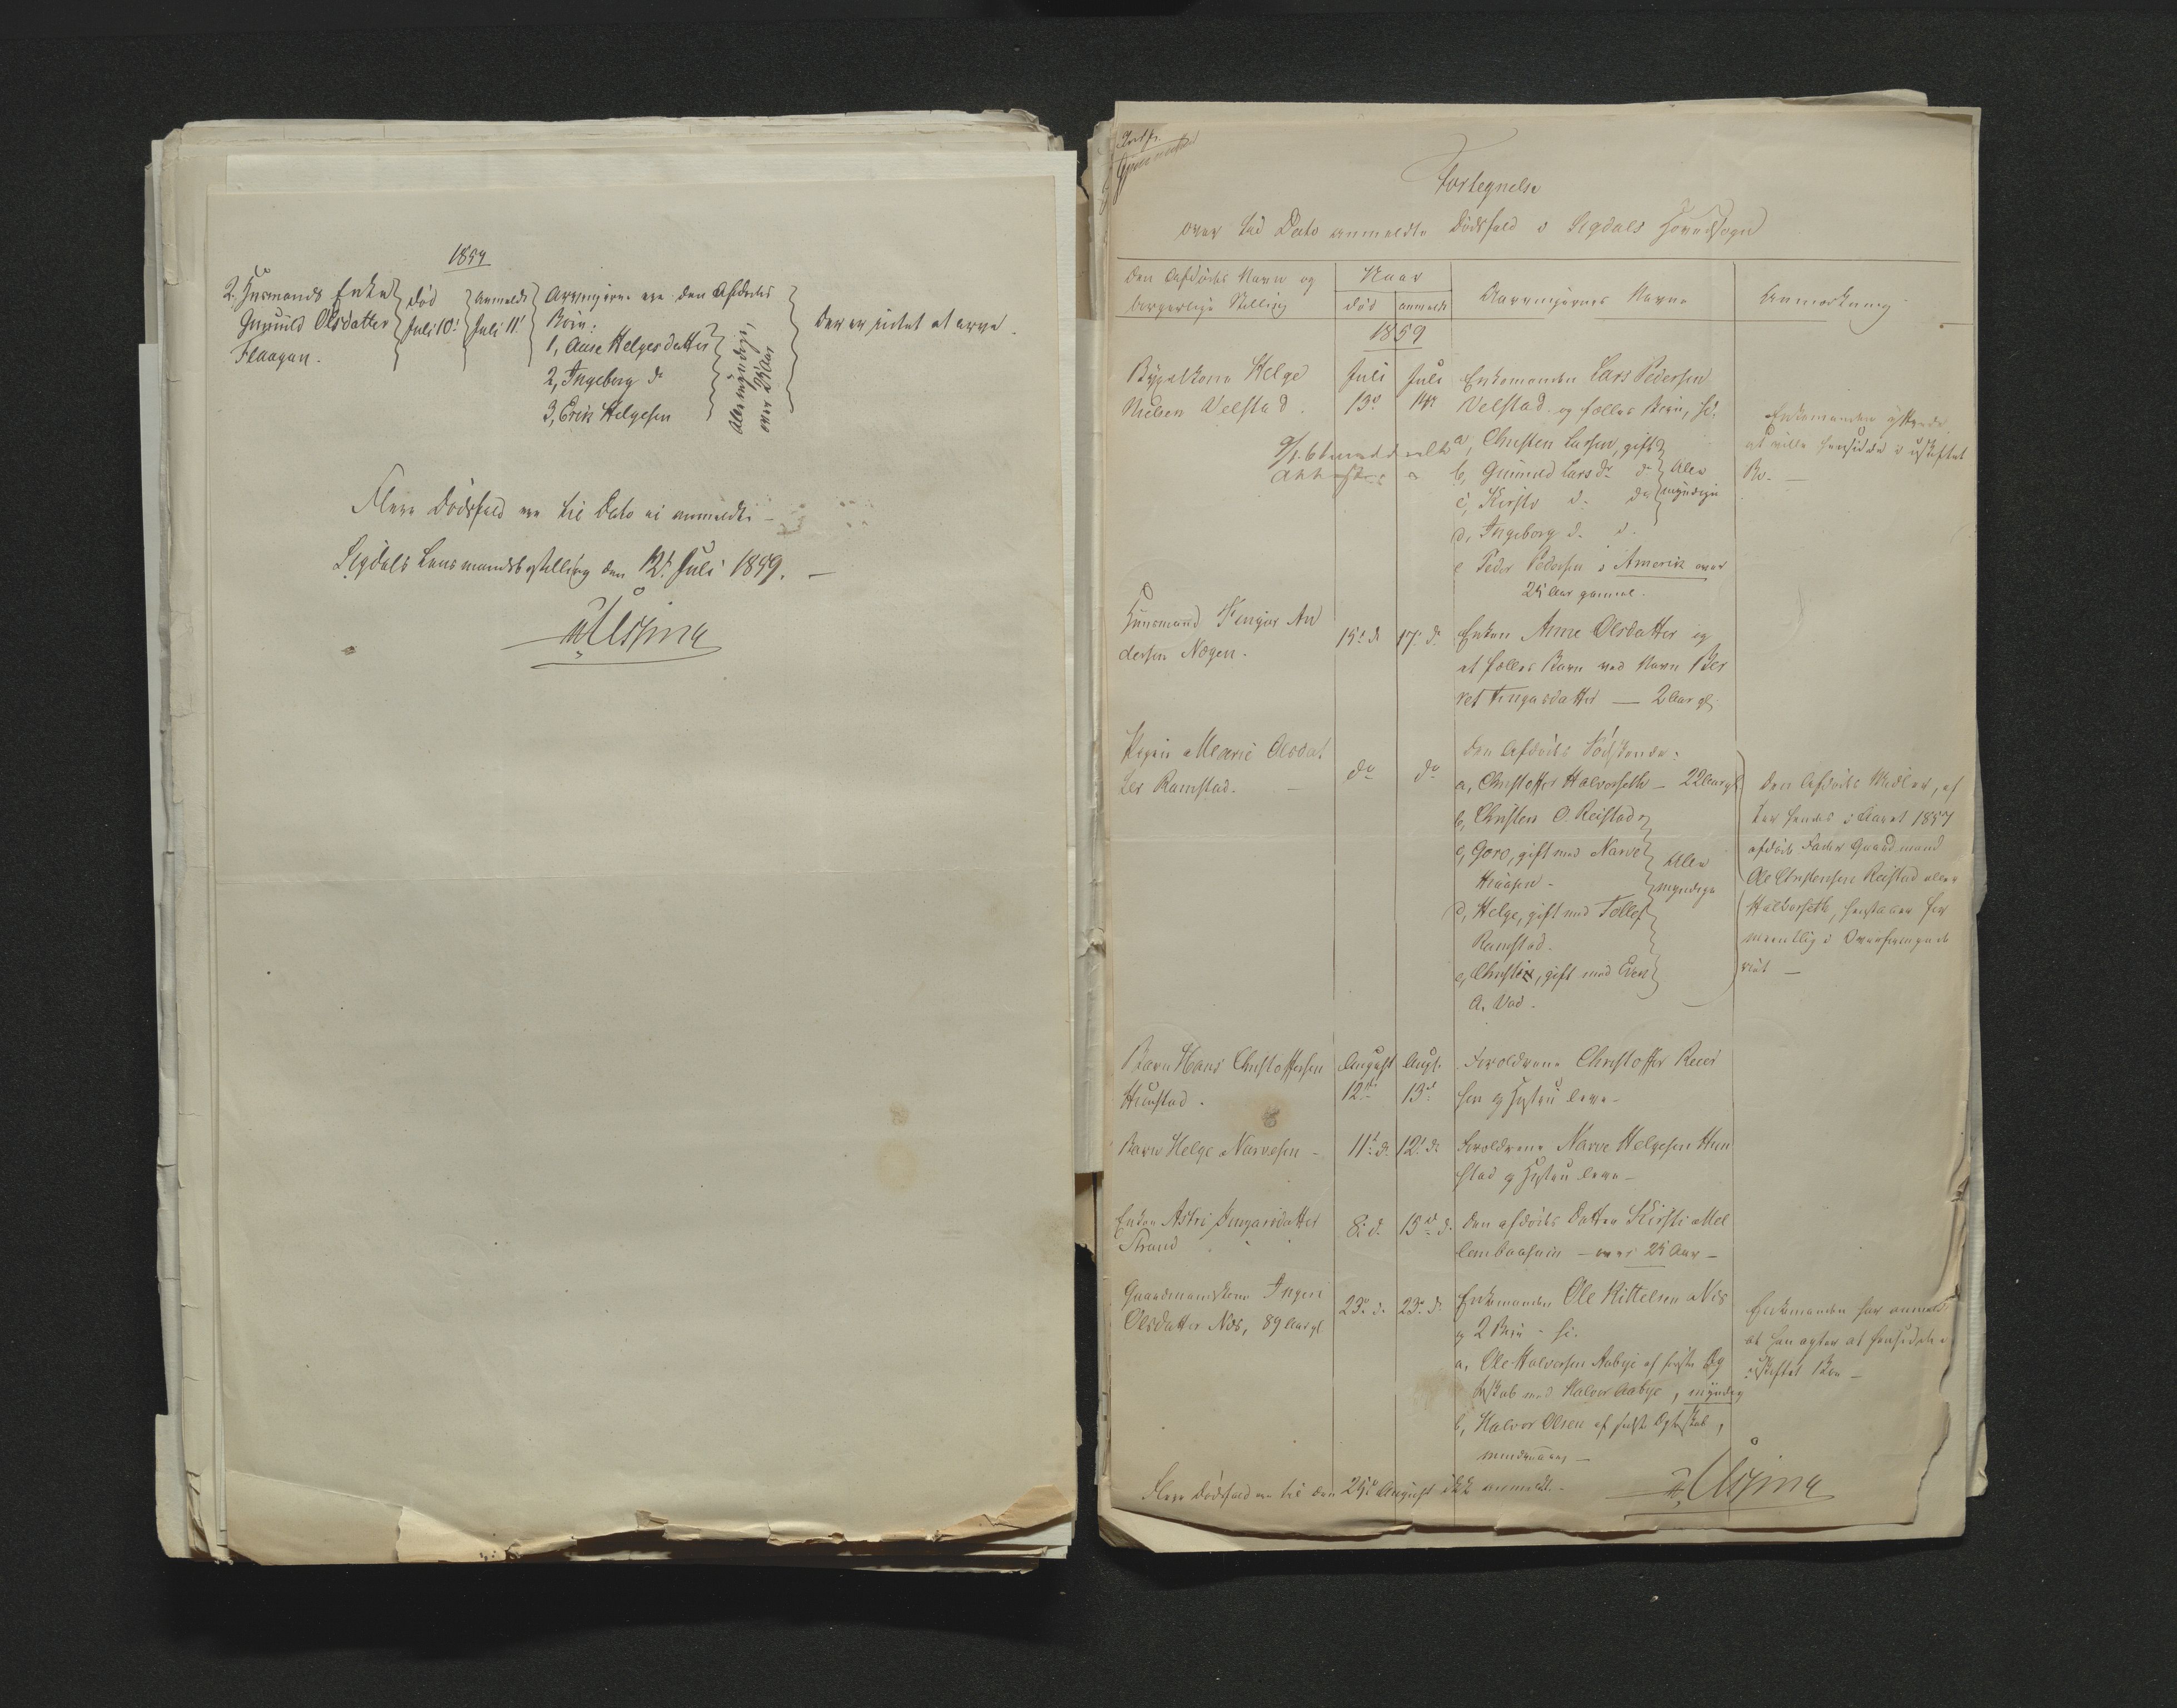 1859
2. Huusmands Enke
Gunnild Olsdatter
Flaagan.
død
Juli 10!
anmeldt
Juli 11!
Arvingerne ere den Afdødes
Børn:
1, Anne Helgesdatter
2, Ingeborg do
3, Erik Helgesen
Alle myndige,
over 25 Aar
Der er intet at arve.
Flere Dødsfald ere til Dato ei anmeldte –
Sigdals Lensmandsbestilling den 12t Juli 1859. –
Fortegnelse
over til Dato anmeldte Dødsfald i Sigdals Hovedsogn
Den Afdødes Navn og
borgerlige Stilling
Naar
død
anmeldt
Arvingernes Navne
Anmærkning
1859
Helge
Nielsen Velstad.
Juli
13de
Juli
14de
Enkemanden Lars Pedersen
Velstad og fælles Børn,
a, Christen Larsen, gift
b, Gunnild Larsdr do
c, Kirsti d. do
d, Ingeborg d. d.
Alle
myndige
e Peder Pedersen i Amerik over
25 Aar gammel.
Enkemanden
at ville hensidde i uskiftet
Bo. –
Huusmand Fingar An
dersen Nogen.
15de do
17de do
Enken Anne Olsdatter og
et fælles Barn ved Navn Ber
het Fingarsdatter — 2 Aar gl.
Pigen Marie Olsdat
ter Ramstad. –
do
do
Den Afdødes Sødskende:
a, Christoffer Halvorseth – 22 Aar gl
b, Christen O. Reistad
c, Goro, gift med Narve
d, Helge, gift med Tollef
Ramstad.
e, Christi, gift med Even
A. Vad.
Alle
myndige
Den Afdødes Midler, ef
ter hendes i Aaret 1857
afdøde Fader Gaardmand
Ole Christensen Reistad eller
Halvorseth, henstaaer for
mentlig i Overformynde
riet –
Barn Hans Christoffersen
Hunstad.
August
12te
Augst.
13de
Forældrene Christoffer Reier
sen og Hustru leve –
Barn Helge Narvesen –
11te do
12te do
Forældrene Narve Helgesen Hun
stad og Hustru leve –
Enken Astri Ingarsdatter
Strand
8de d.
13de d.
Den afdødes Datter Kirsti Mel
– over 25 Aar –
Gaardmandskone Ingeri
Olsdatter Nos, 89 Aar gl.
23de d.
23de do
Enkemanden Ole Kittelsen Nos
og 2 Børn –
a, Ole Halvorsen Aabye af første Eg
teskab med Halvor Aabye, myndig
b, Halvor Olsen af sidste Egteskab,
Enkemanden har anmeldt
at han agter at hensidde i
uskiftet Boe –
Flere Dødsfald ere til den 25de August ikke anmeldt. –